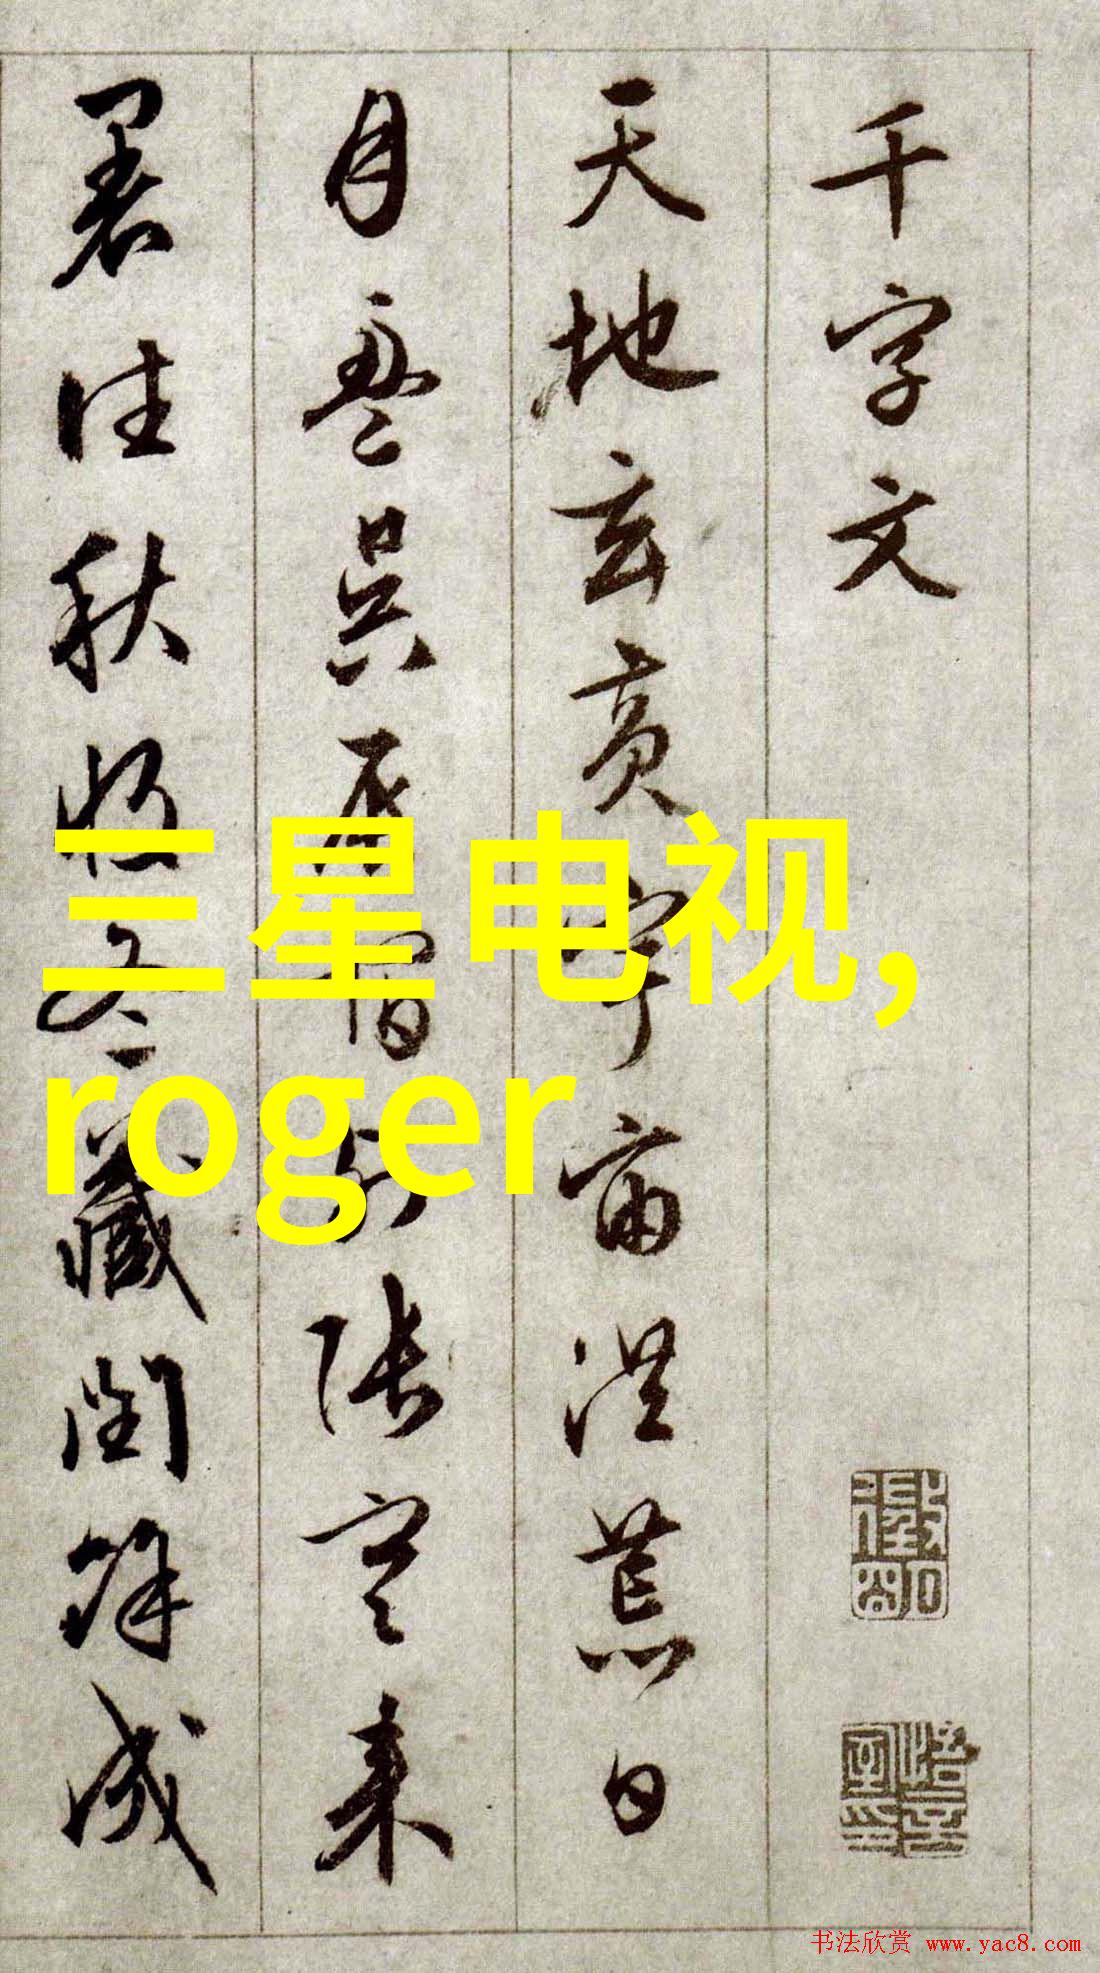 千字文
天地玄黃宇宙洪荒日
月盈昃辰宿列張寒來
暑往秋收冬藏閏餘成
三星电视,
roger
书法欣赏 www.yac8.com